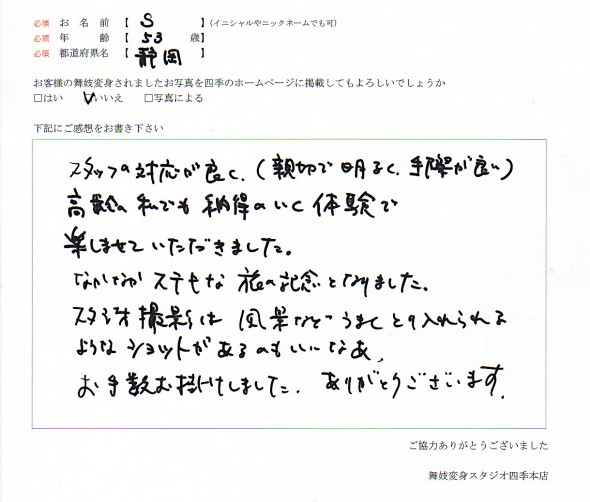 必須 お名前 【 S 】(イニシャルやニックネームでも可)
必須 年齢 【 53 歳】
必須 都道府県名 【 静岡 】
お客様の舞妓変身されましたお写真を四季のホームページに掲載してもよろしいでしょうか
□はい ☑いいえ □写真による
下記にご感想をお書き下さい
スタッフの対応が良く、(親切で明るく、手際が良い)
高齢の私でも納得のいく体験で
楽しませていただきました。
なかなかステキな旅の記念となりました。
スタジオ撮影は風景などうまくとり入れられる
ようなショットがあるのもいいなあ。
お手数お掛けしました。ありがとうございます。
ご協力ありがとうございました
舞妓変身スタジオ四季本店